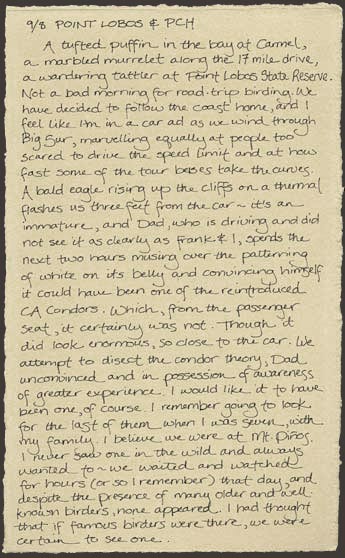 9/8 POINT LOBOS & PCH
A tufted puffin in the bay at Carmel,
a marbled murrelet along the 17 mile drive,
a wandering tattler at Point Lobos State Reserve.
Not a bad morning for road-trip birding. We
have decided to follow the coast home, and I
feel like I'm in a car ad as we wind through
Big Sur, marvelling equally at people too
scared to drive the speed limit and at how
fast some of the tour buses take the curves.
A bald eagle rising up the cliffs on a thermal
flashes us three feet from the car ~ it's an
immature, and Dad, who is driving and did
not see it as clearly as Frank & I, spends the
next two hours musing over the patterning
of white on its belly and convincing himself
it could have been one of the reintroduced
CA Condors. Which, from the passenger
seat, it certainly was not. Though it
did look enormous, so close to the car. We
attempt to disect the condor theory, Dad
unconvinced and in possession of awareness
of greater experience. I would like it to have
been one, of course. I remember going to look
for the last of them when I was seven, with
my family. I believe we were at Mt. Piños.
I never saw one in the wild and always
wanted to ~ we waited and watched
for hours (or so I remember) that day, and
despite the presence of many older and well-
known birders, none appeared. I had thought
that if famous birders were there, we were
certain to see one.